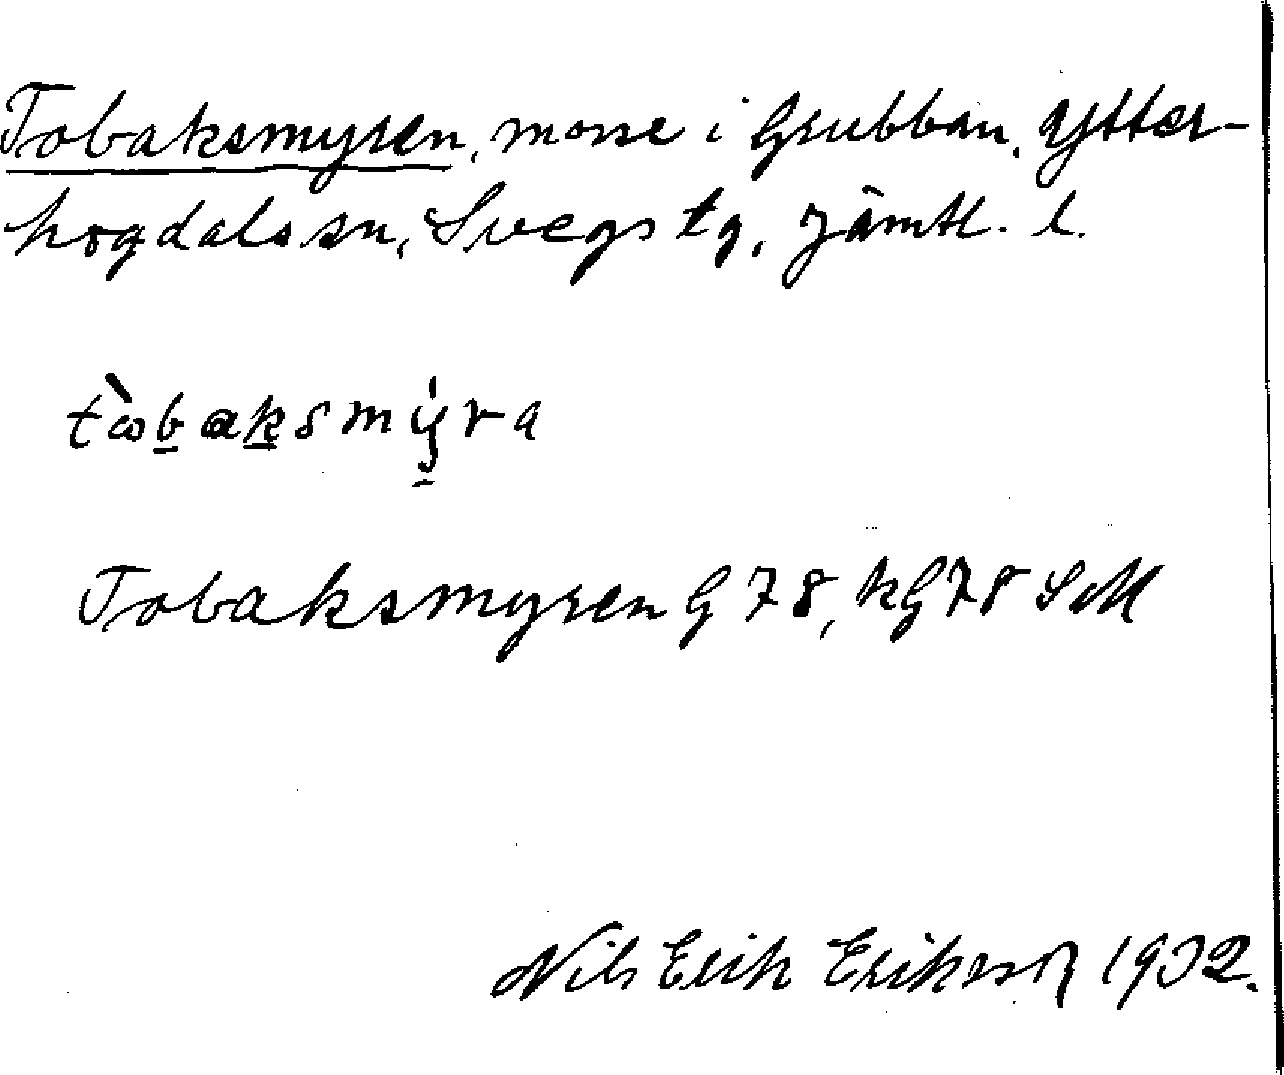 Tobaksmyren, mosse i Grubban, Ytter-
hogdals sn, Svegs tg, Jämtl. l.
tὼbaksmy̍ra
Tobaksmyren G 78, kG 78 SM
Nils Erik Eriksson 1932.